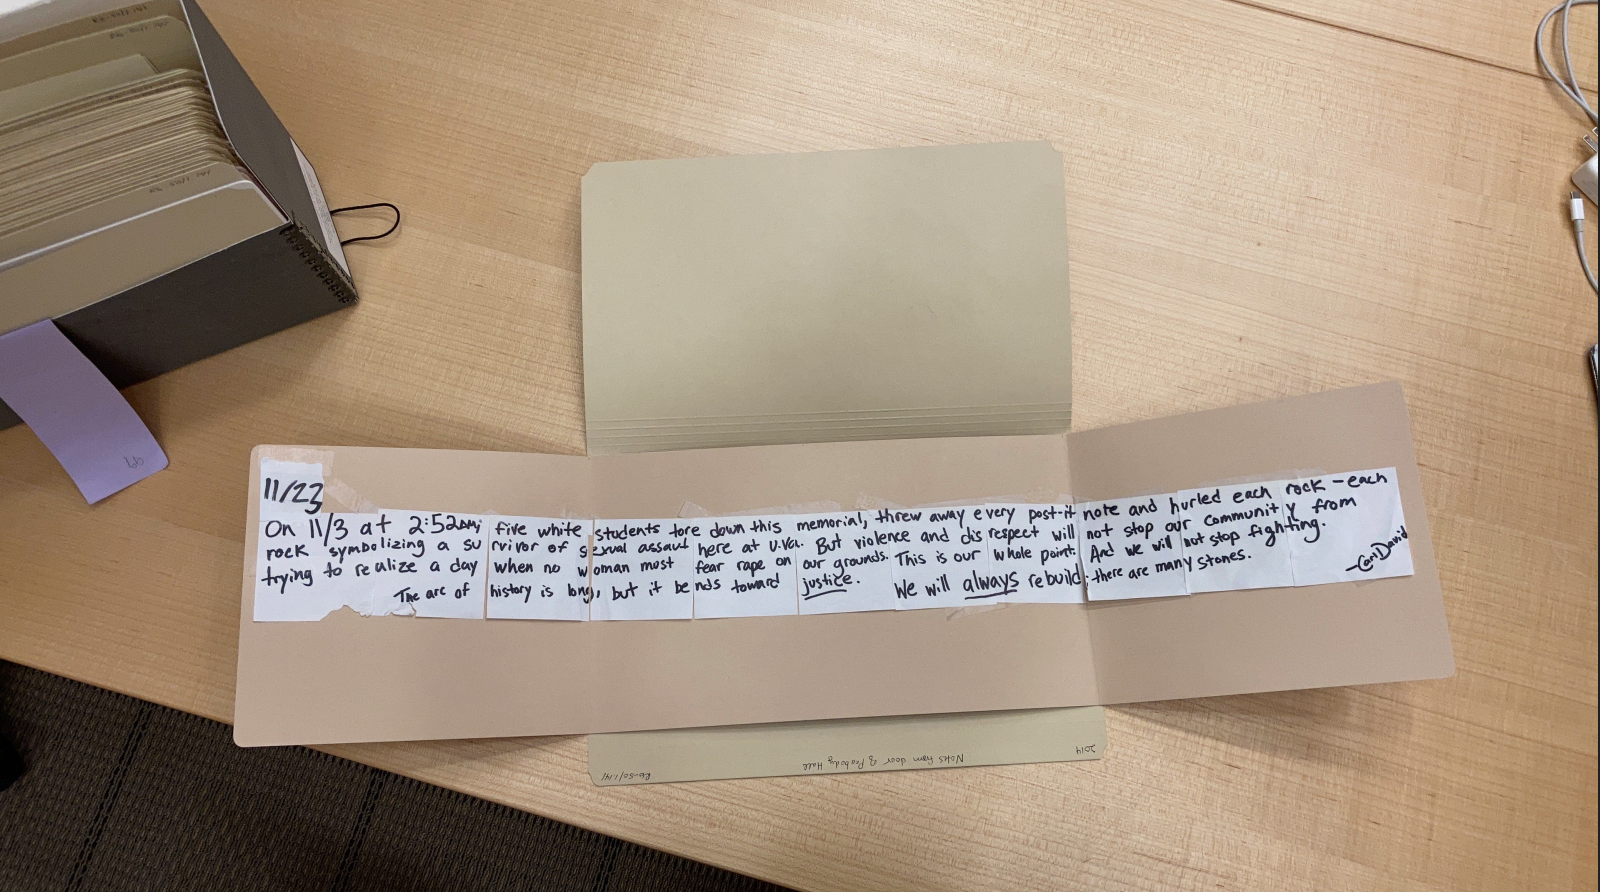 11/23
On 11/3 at 2:52AM, five white students tore down this memorial, threw away every post-it note and hurled each rock - each
rock symbolizing a survivor of sexual assault here at U.Va. But violence and disrespect will not stop our community from
trying to realize a day when no woman must fear rape on our grounds. This is our whole point. And we will not stop fighting.
The arc of history is long, but it bends toward justice. We will always rebuild; there are many stones.
RG-50/1.141
Notes from door of Peabody Hall
2014